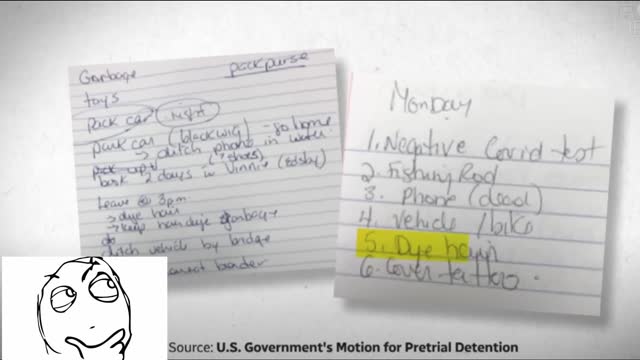 Garbage
pack purse
toys
pack car night
park car (black wig) - go home
→ ditch phone in water
2 days in Vinnie
Leave @ 3pm
→ dye hair
→ keep hair dye garbage
ditch vehicle by bridge
border
Monday
1. Negative Covid test
2. Fishing Rod
3. Phone (dead)
4. Vehicle / bike
5. Dye hair
6. Cover tattoo
Source: U.S. Government's Motion for Pretrial Detention